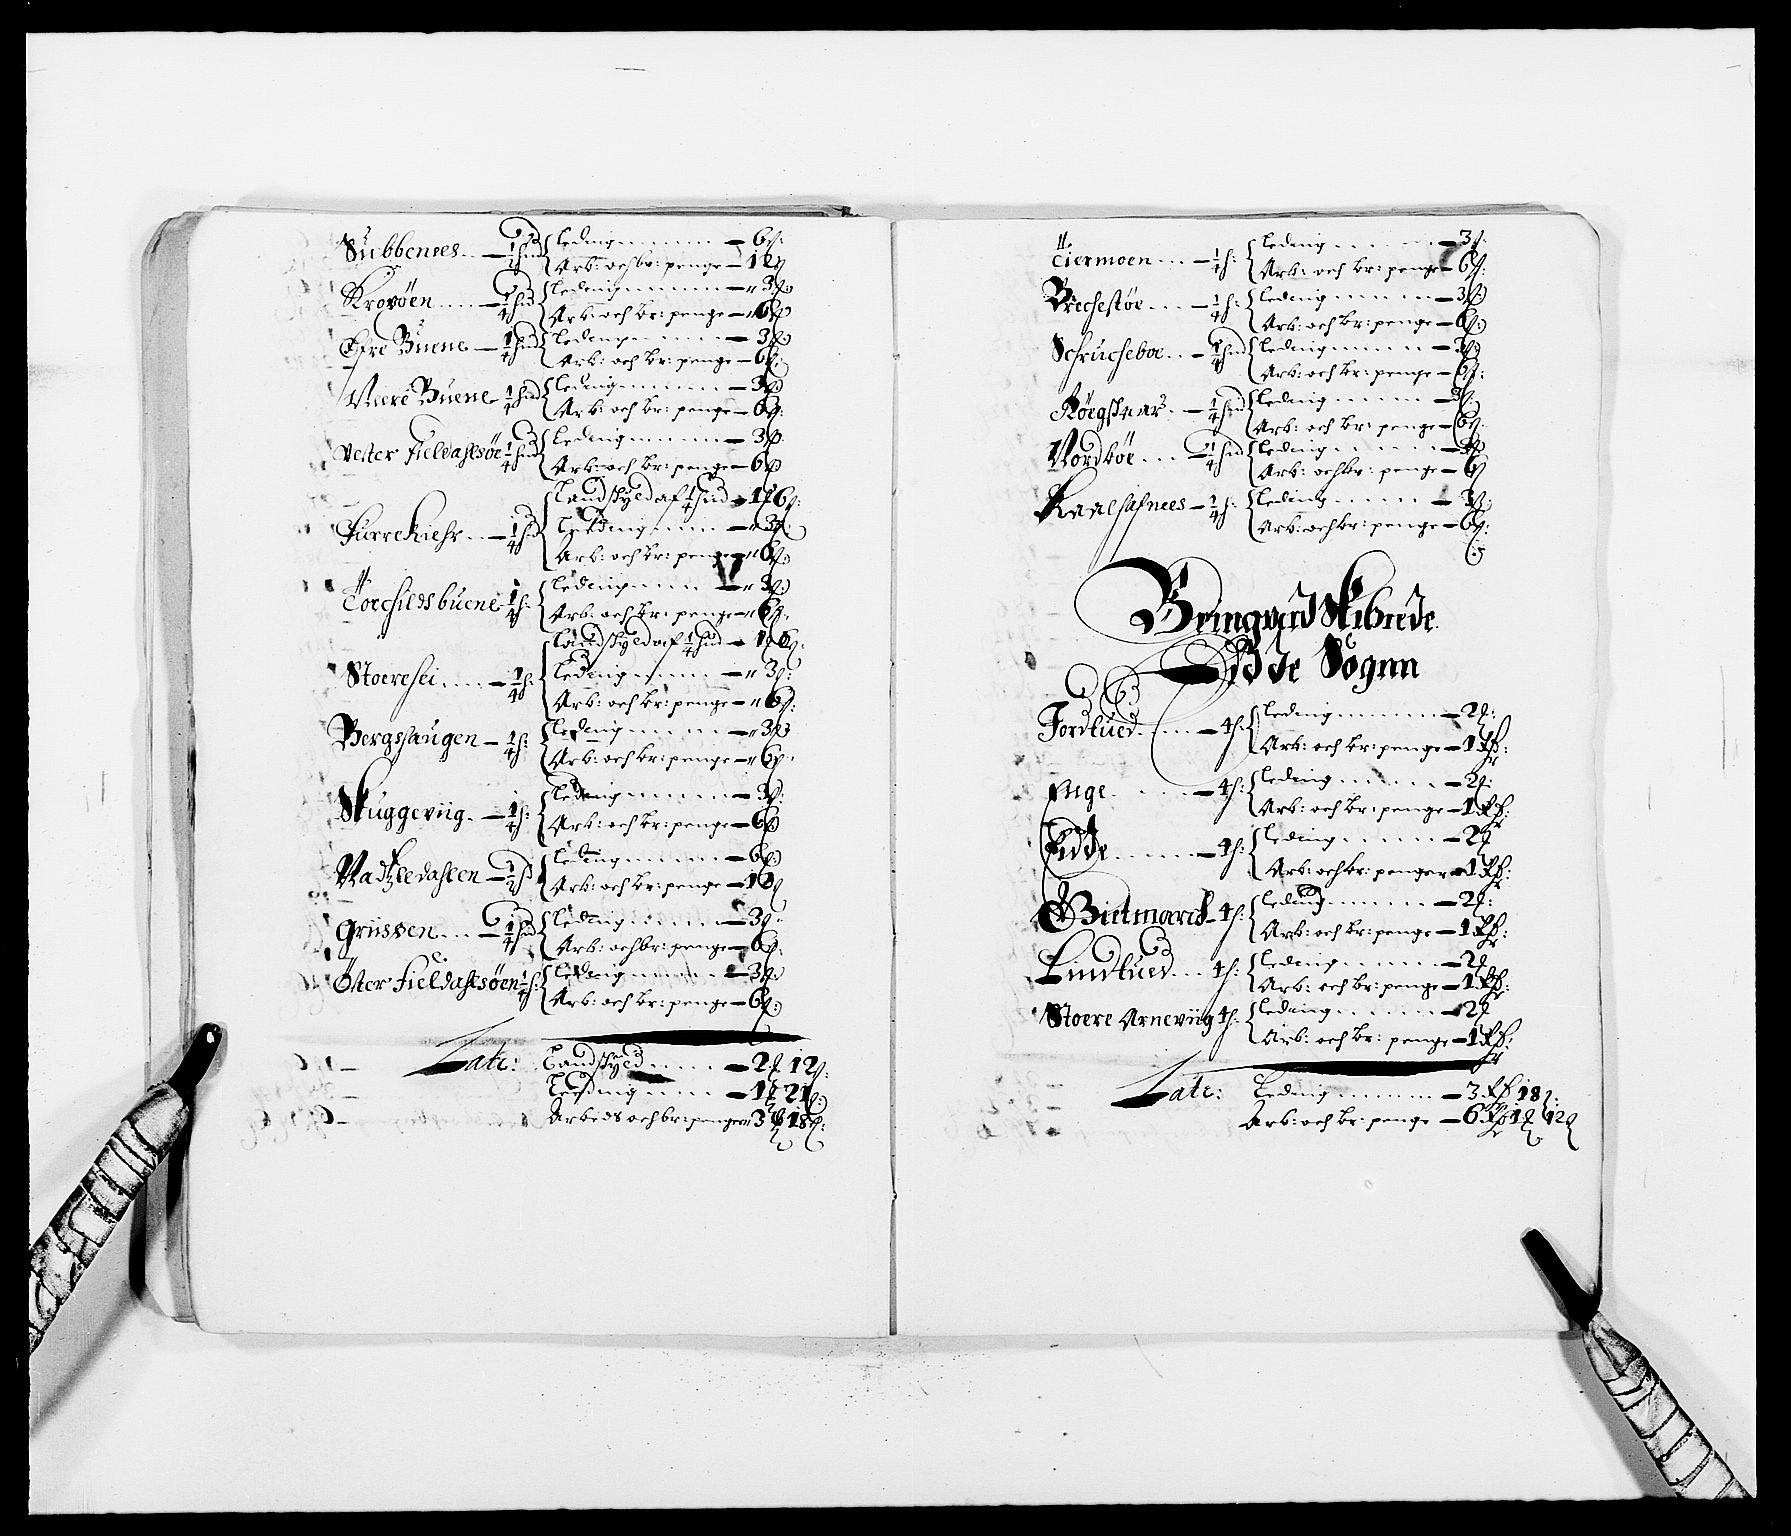 Stubbenees.. — ½ hud { leding ....... — 6 ß:
Arb: och br: penge — 12 ß
Krovöen ..... — ¼ hud { leding ....... — 3 ß:
Arb: och br: penge — 6 ß
Øfre Buene — ¼ hud { leding ....... — 3 ß:
Arb: och br: penge — 6 ß:
Niere Buene — ¼ hud { leding ....... — 3 ß:
Arb: och br: penge — 6 ß:
Vester Fieldahlsöe ¼ hud { leding ....... — 3 ß:
Arb: och br: penge — 6 ß:
landschyld af ¼ hud — 1 6 ß:
Furrekiehr .. — ¼ hud { leding ....... — 3 ß:
Arb: och br: penge — 6 ß:
Torchildsbuene ¼ h: { leding ....... — 3 ß:
Arb: och br: penge — 6 ß:
landschyld af ¼ hud — 1 6 ß:
Stoeresei ..... — ¼ h: { leding ....... — 3 ß:
Arb: och br: penge — 6 ß:
Bergshaugen — ¼ h: { leding ....... — 3 ß:
Arb: och br: penge — 6 ß:
Skuggeviig. — ¼ h: { leding ....... — 3 ß:
Arb: och br: penge — 6 ß:
Vadtzledahlen — ½ h { leding ....... — 6 ß:
Arb: och br: penge — 12 ß
Griissen .... — ¼ hud { leding ....... — 3 ß:
Arb: och br: penge — 6 ß:
Öster Fieldahlsöen ¼ h: { leding ....... — 3 ß:
Arb: och br: penge — 6 ß:
Late: Landschyld ..... — 2 12 ß:
Leding ..... — 1 21 ß:
Arbeds och br: penger 3 18 ß:
Tiermoen .... — ¼ h: { leding ....... — 3 ß:
Arb: och br: penge — 6 ß:
Brechestöe .... — ¼ h: { leding ....... — 3 ß:
Arb: och br: penge — 6 ß:
Schrucheboe .. — ¼ hud { leding ....... — 3 ß:
Arb: och br: penge — 6 ß:
— ¼ hud { leding ....... — 3 ß:
Arb: och br: penge — 6 ß:
Nordböe .... — ¼ hud { leding ....... — 3 ß:
Arb: och br: penge — 6 ß
Kaalsasnees — ¼ h: { leding ....... — 3 ß:
Arb: och br: penge — 6 ß:
Skibrede
Eidde Sogn
Fordtued ..... — 4 h: { leding ....... — 2
Arb: och br: penge — 1
Enge ...... — 4 h: { leding ....... — 2
Arb: och br: penge — 1
Eidde ....... — 4 h: { leding ....... — 2
Arb: och br: penger — 1
Bietmarch — 4 h: { leding ....... — 2
Arb: och br: penge — 1
Lindtued .... 4 h: { leding ....... — 2
Arb: och br: penge — 1
Stoere Arneviig 4 h: { leding ....... — 2
Arb: och br: penge — 1
Late: Leding ......... — 3 18 ß:
Arb: och br: penge — 6 1 12 ß